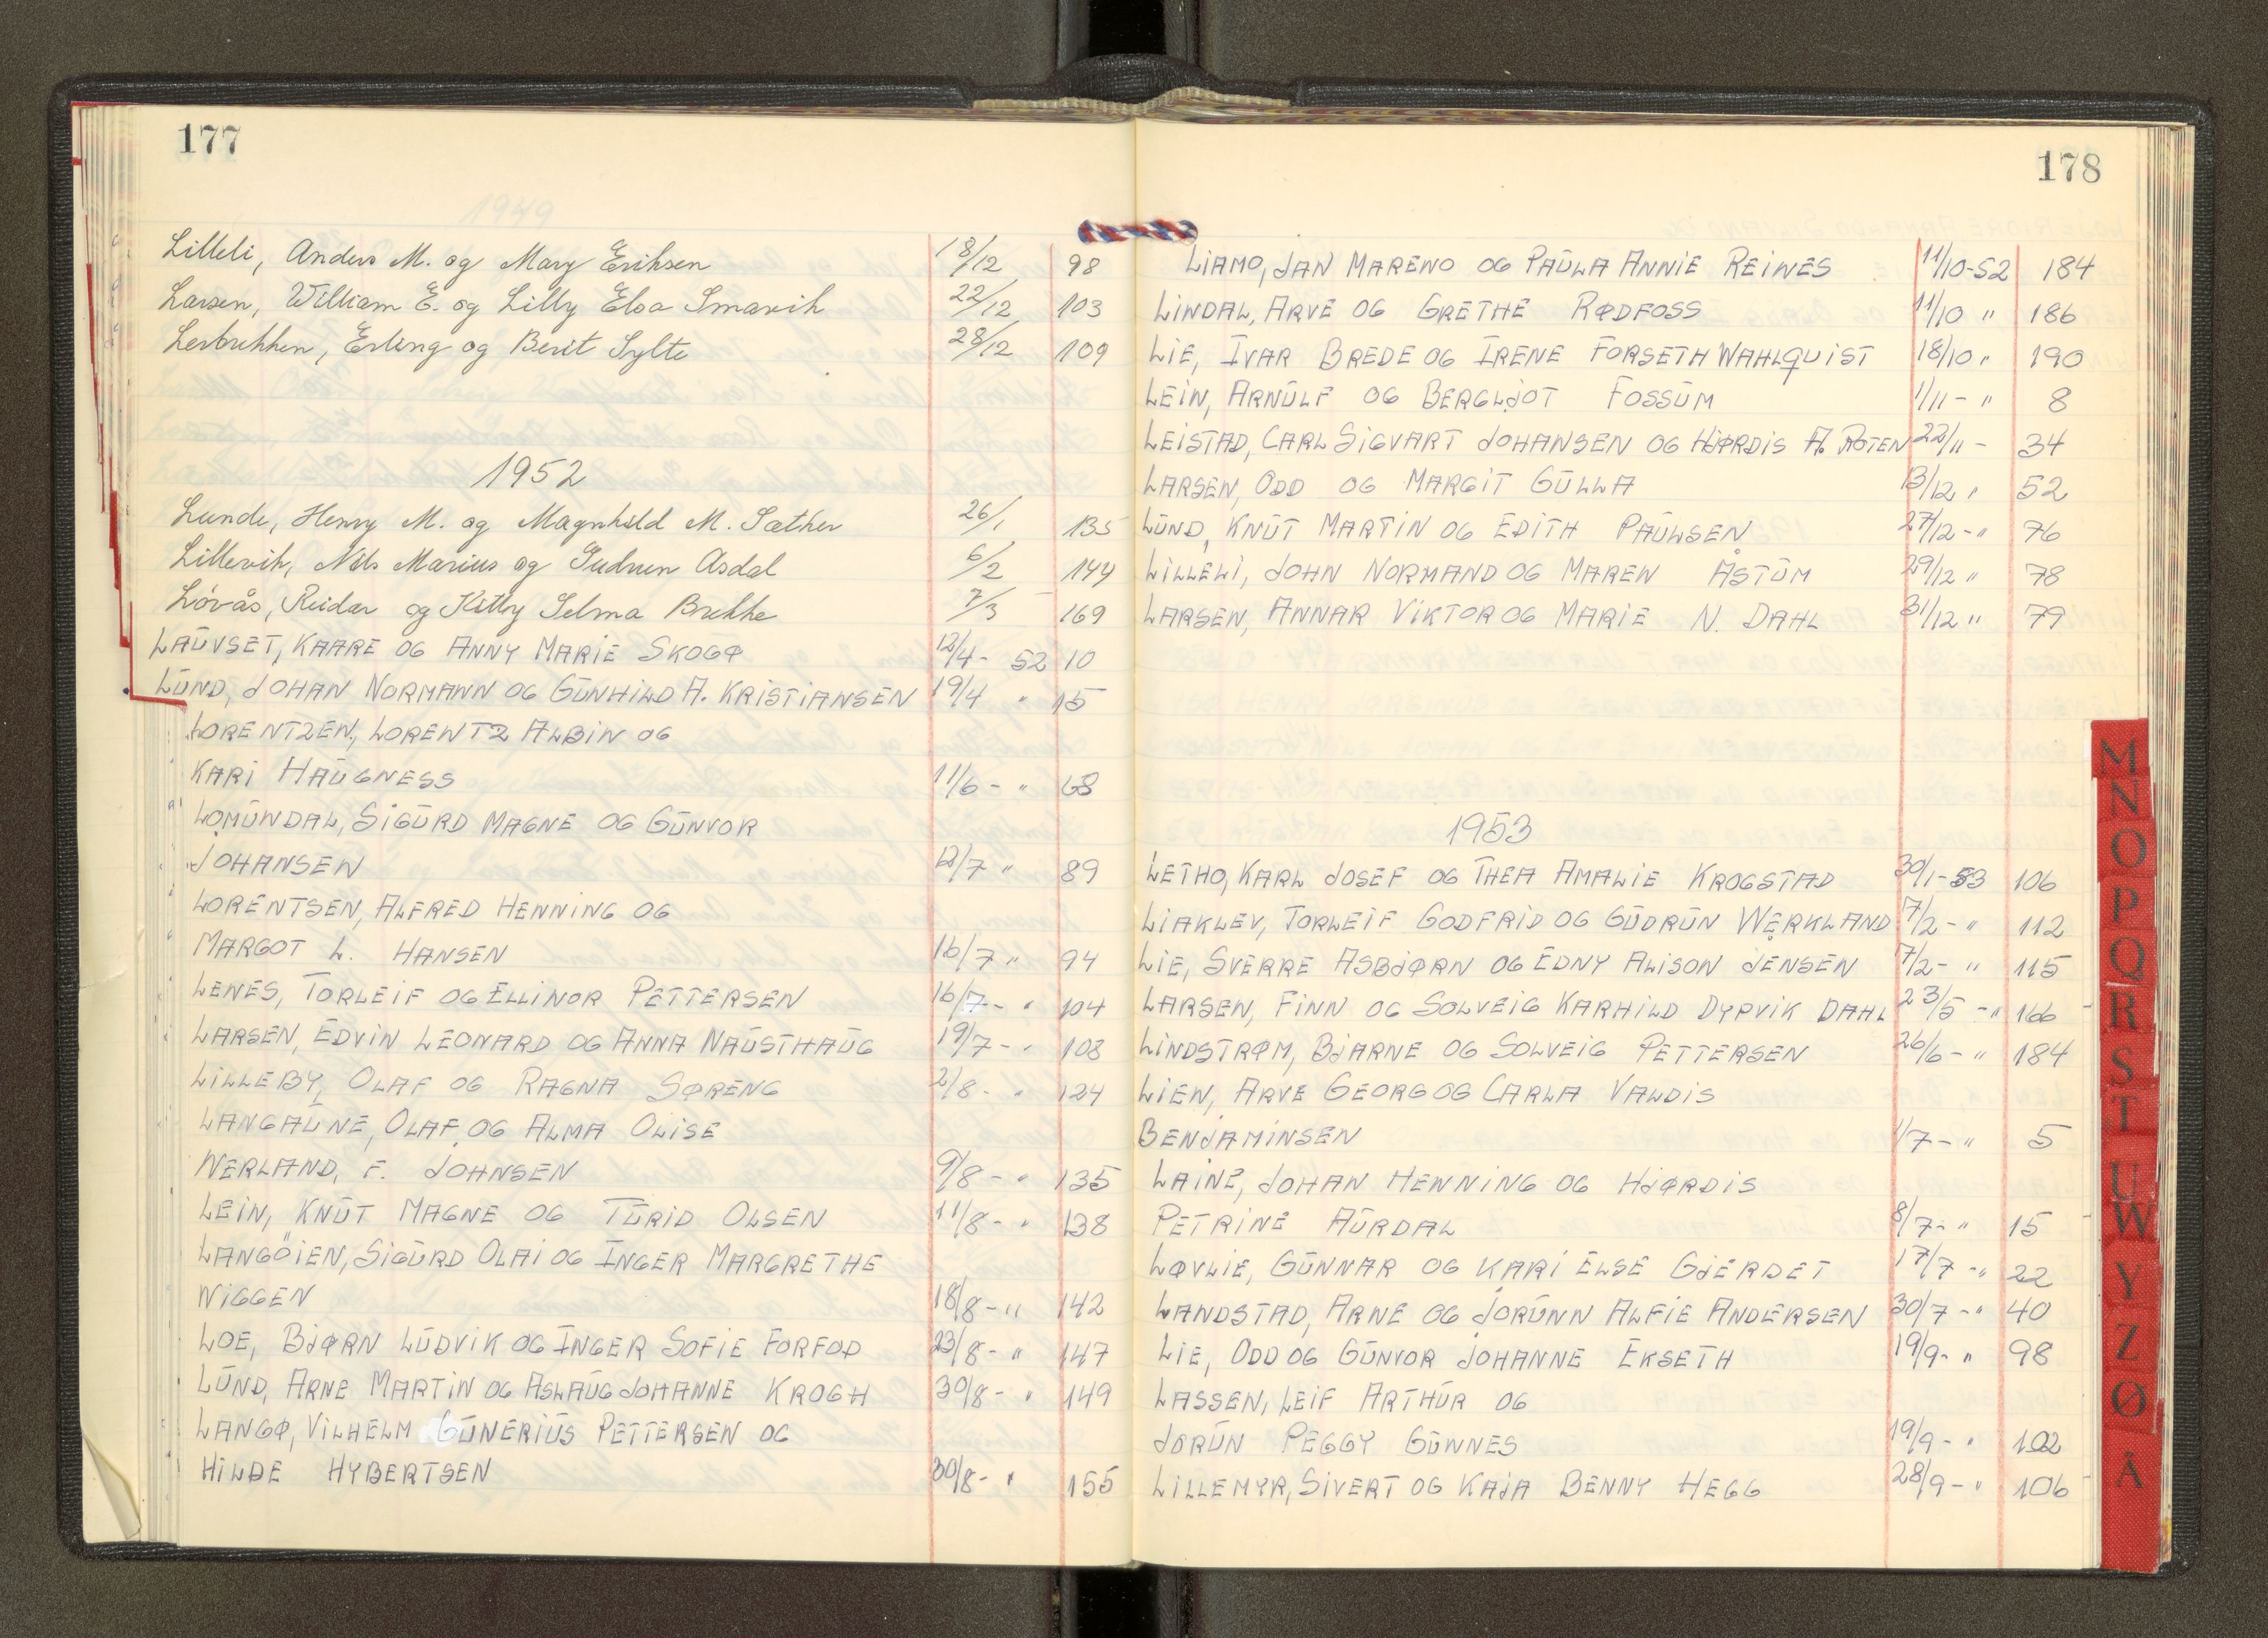 177
Lilleli, Anders M. og Mary Eriksen 18/12 98
Larsen, William E. og Lilly Elsa Smavik 22/12 103
Lerbrekken, Erling og Berit Sylte 28/12 109
1952
Lunde, Henry M. og Magnhild M. Sæther 26/1 135
Lillevik, Nils Marius og Gudrun Asdal 6/2 144
Løvås, Reidar og Kitty Selma Brekke 7/3 169
LAŪVSET, KAARE OG ANNY MARIE SKOGØ 12/4- 52 10
LŪND, JOHAN NORMANN OG GŪNHILD A. KRISTIANSEN 19/4 " 15
LORENTZEN, LORENTZ ALBIN OG
KARI HAŪGNESS 11/6 - " 68
LOMŪNDAL, SIGŪRD MAGNE OG GŪNVOR
JOHANSEN 12/7 " 89
LORENTSEN, ALFRED HENNING OG
MARGOT L. HANSEN 16/7 " 94
LENES, TORLEIF OG ELLINOR PETTERSEN 16/7 - " 104
LARSEN, EDVIN LEONARD OG ANNA NAŪSTHAŪG 19/7 - " 108
LILLEBY, OLAF OG RAGNA SØRENG 2/8 - " 124
LANGAŪNE, OLAF OG ALMA OLISE
WERLAND, F. JOHNSEN 9/8 - " 135
LEIN, KNŪT MAGNE OG TŪRID OLSEN 11/8 - " 138
LANGÖIEN, SIGŪRD OLAI OG INGER MARGRETHE
WIGGEN 18/8 - " 142
LOE, BJØRN LŪDVIK OG INGER SOFIE FORFOD 23/8 - " 147
LŪND, ARNE MARTIN OG ASLAŪG JOHANNE KROGH 30/8 - " 149
LANGØ, VILHELM GŪNERIŪS PETTERSEN OG
HILDE HYBERTSEN 30/8 - " 155
178
LIAMO, JAN MARENO OG PAŪLA ANNIE REINES 11/10-52 184
LINDAL, ARVE OG GRETHE RØDFOSS 11/10 " 186
LIE, IVAR BREDE OG IRENE FORSETH WAHLQUIST 18/10 " 190
LEIN, ARNŪLF OG BERGLJOT FOSSŪM 1/11 - " 8
LEISTAD, CARL SIGVART JOHANSEN OG HJØRDIS A. ROTEN 22/11 - 34
LARSEN, ODD OG MARGIT GŪLLA 13/12 " 52
LŪND, KNŪT MARTIN OG EDITH PAŪLSEN 27/12 - " 76
LILLELI, JOHN NORMAND OG MAREN ÅSTŪM 29/12 " 78
LARSEN, ANNAR VIKTOR OG MARIE N. DAHL 31/12 " 79
1953
LETHO, KARL JOSEF OG THEA AMALIE KROGSTAD 30/1-53 106
LIAKLEV, TORLEIF GODFRID OG GŪDRŪN WERKLAND 7/2 - " 112
LIE, SVERRE ASBJØRN OG EDNY ALISON JENSEN 7/2 - " 115
LARSEN, FINN OG SOLVEIG KARHILD DYPVIK DAHL 23/5 - " 166
LINDSTRØM, BJARNE OG SOLVEIG PETTERSEN 26/6 - " 184
LIEN, ARVE GEORG OG CARLA VALDIS
BENJAMINSEN 1/7 - " 5
LAINE, JOHAN HENNING OG HJØRDIS
PETRINE AŪRDAL 8/7 - " 15
LØVLIE, GŪNNAR OG KARI ELSE GJERDET 17/7 - " 22
LANDSTAD, ARNE OG JORŪNN ALFIE ANDERSEN 30/7 - " 40
LIE, ODD OG GŪNVOR JOHANNE EKSETH 19/9 - " 98
LASSEN, LEIF ARTHŪR OG
JORŪN PEGGY GŪNNES 19/9 - " 102
LILLEMYR, SIVERT OG KAJA BENNY HEGG 28/9 - " 106
M
N
O
P
Q
R
S
T
U
W
Y
Z
Ø
A